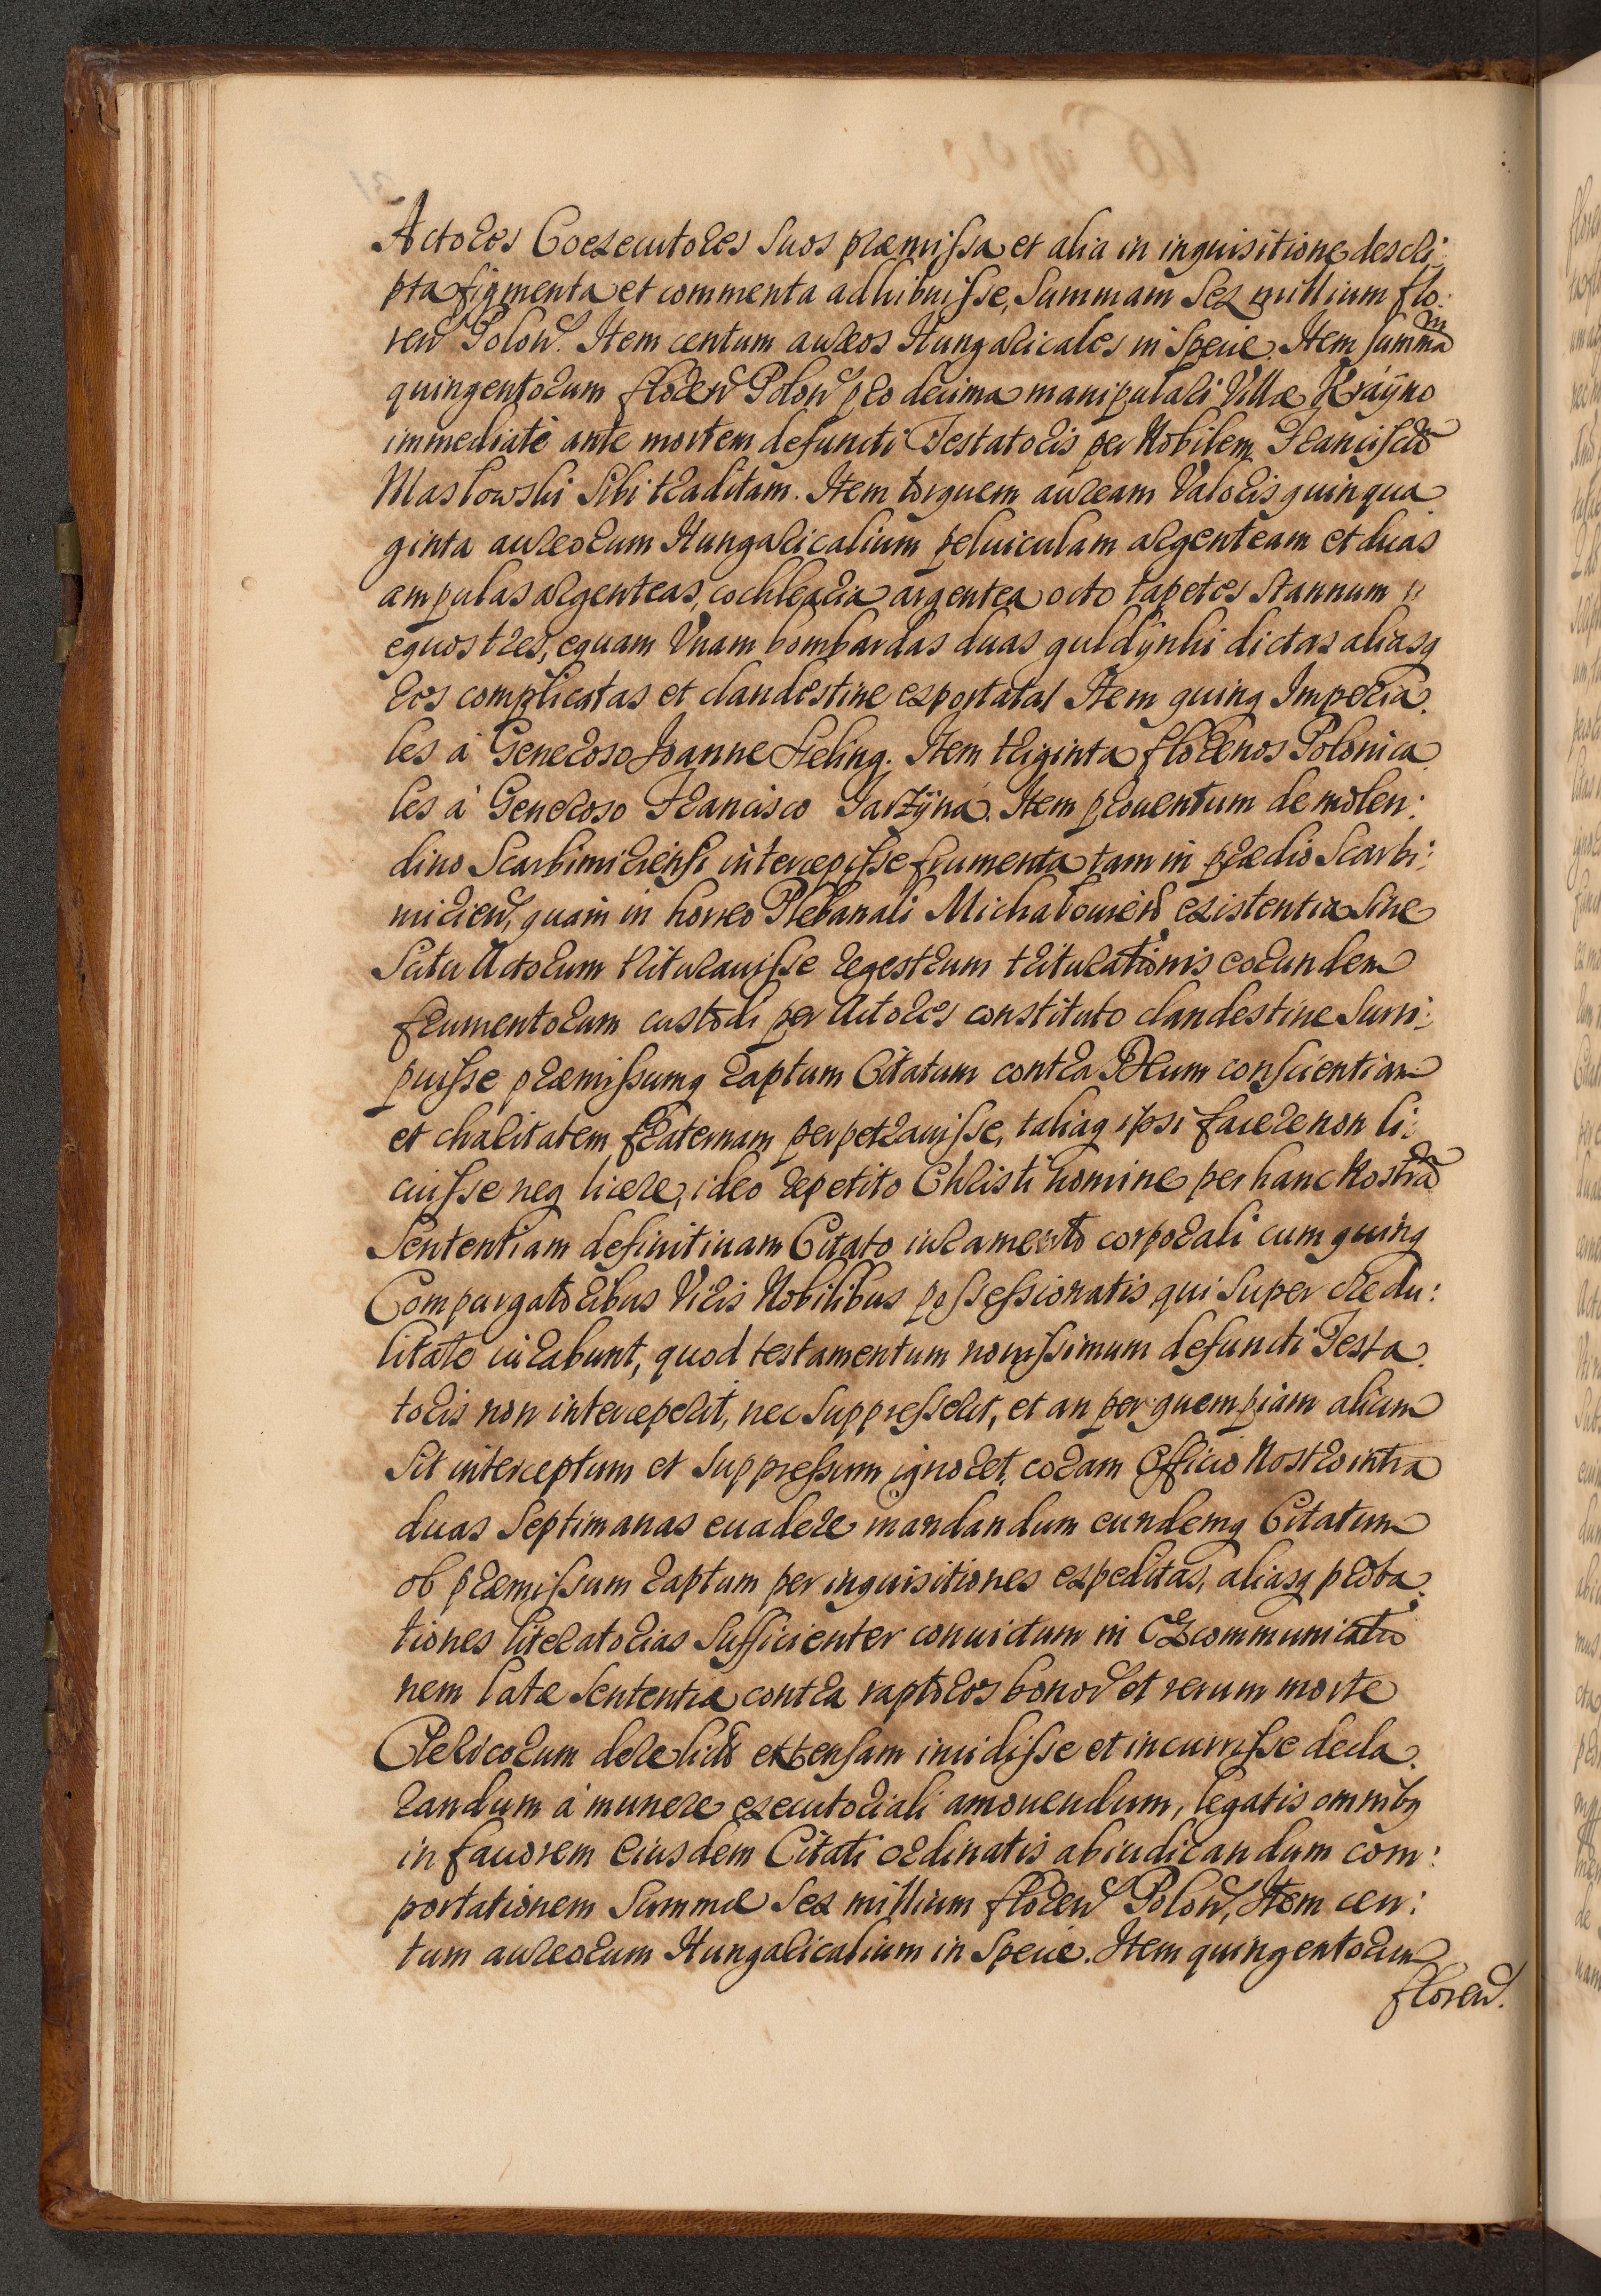 Actores Coexecutores suos præmissa et alia in inquisitione descri:
pta figmenta et commenta adhibuisse, Summam Sex millium flo:
ren Polon. Item centum aureos Hungaricales in Specie. Item summam
quingentorum floren Polon pro decima manipulari Villæ Krayno
immediatè ante mortem defuncti Testatoris per Nobilem Franciscu
Masłowski Sibi traditam. Item torquem auream Valoris quinqua
ginta aureorum Hungaricalium pelviculam argenteam et duas
ampulas argenteas, cochlearia argentea octo tapetes Stannum
equos tres, equam Vnam bombardas duas guldynki dictas aliasq
Res complicatas et clandestine exportatas Item quinq Imperia.
les à Generoso Joanne Heling. Item triginta florenos Polonica
les à Generoso Francisco Jarzyna. Item prouentum de molen:
dino Scarbimiriensi intercepisse frumenta tam in prædio Scarbi:
mirien, quàm in horreo Plebanali Michalouien existentia Sine
Scitu Actorum triturauisse regestrum triturationis eorundem
frumentorum custodi per Actores constituto clandestine Surri:
puisse præmissumq raptum Citatum contra Deum conscientiam
et charitatem fraternam perpetrauisse, taliaq ipsi facere non li:
cuisse neq licere, ideo repetito Christi nomine per hanc Nostram
Sententiam definitiuam Citato iuramento corporali cum quinq
Compurgatoribus Viris Nobilibus possessionatis qui Super credu:
litate iurabunt, quod testamentum nouissimum defuncti Testa.
toris non interceperit, nec Suppresserit, et an per quempiam alium
Sit interceptum et Suppressum ignoret, coram Officio Nostro intra
duas Septimanas euadere mandandum eundemq Citatum
ob præmissum raptum per inquisitiones expeditas, aliasq proba:
tiones literatorias Sufficienter conuictum in Excommunicatio
nem latæ Sententiæ contra raptores bonor et rerum morte
Clericorum derelict extensam incidisse et incurrisse decla.
randum à munere executoriali amouendum, legatis omnibq
in fauorem Eiusdem Citati ordinatis abiudicandum com:
portationem Summæ Sex millium floren Polon, Item cen:
tum aureorum Hungaricalium in Specie. Item quingentorum
floren.